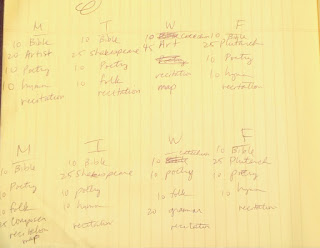 M T W F
10 Bible 10 Bible 10 Catechism 10 Bible
20 Artist 25 Shakespeare 45 Art 25 Plutarch
10 Poetry 10 Poetry 10 Poetry
10 hymn 10 folk recitation 10 hymn
recitation recitation map recitation
M T W F
10 Bible 10 Bible 10 25 Plutarch
10 Poetry 25 Shakespeare 10 poetry 10 poetry
10 folk 10 poetry 10 folk 10 hymn
25 Composer 10 hymn 20 grammar recitation
recitation recitation recitation
map